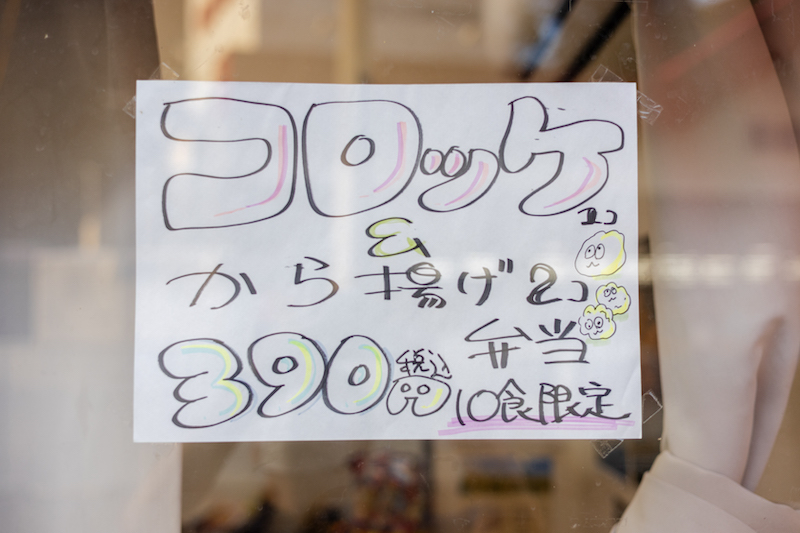 コロッケ 1コ
&
から揚げ2コ
弁当
390円 税込
10食限定